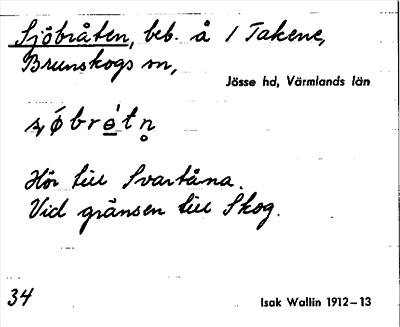 Sjöbråten, beb. å 1 Takene,
Brunskogs sn,
Jösse hd, Värmlands län
Hör till Svartåna.
Vid gränsen till Skog.
34 Isak Wallin 1912–13